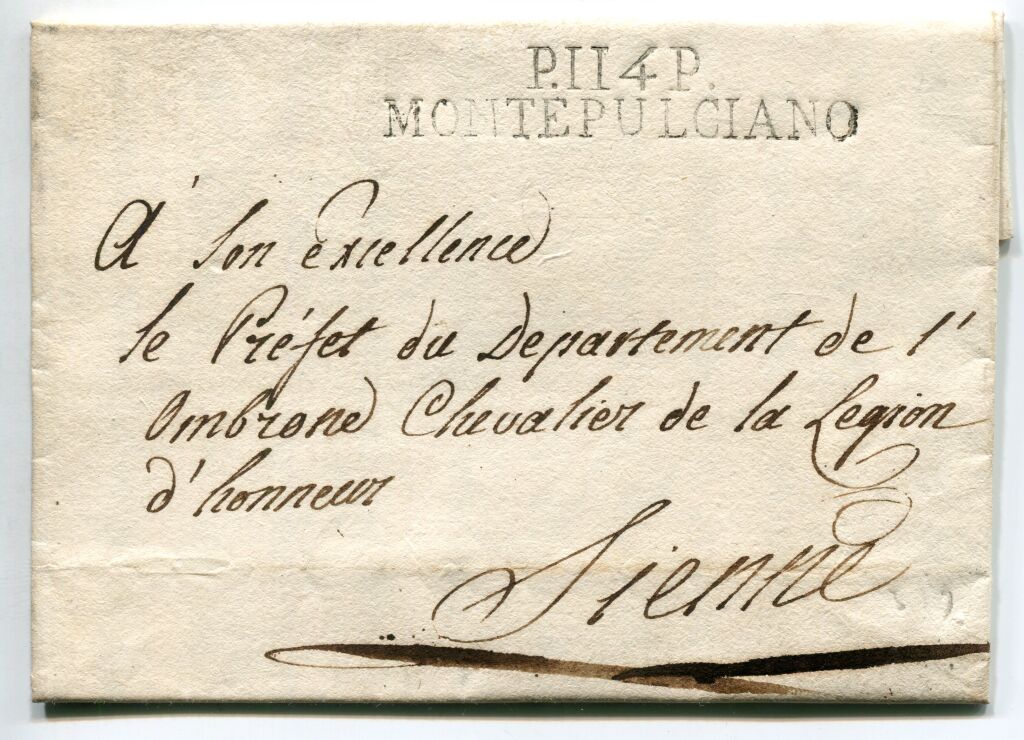 P.114P.
MONTEPULCIANO
A' Son excellence
le Préfet du Departement de l'
Ombrone Chevalier de la Legion
d'honneur
Sienne